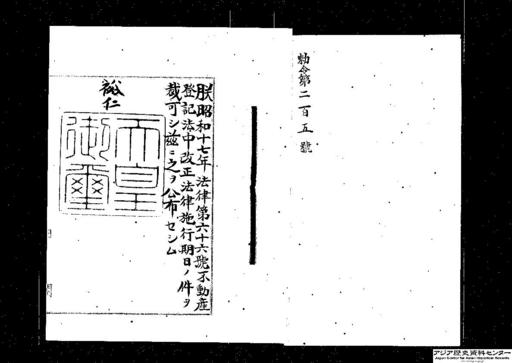 勅令第二百五號
朕昭和十七年法律第六十六號不動産
登記法中改正法律施行期日ノ件ヲ
裁可シ茲ニ之ヲ公布セシム
裕仁
天皇
御璽
アジア歴史資料センター
Japan Center for Asian Historical Records